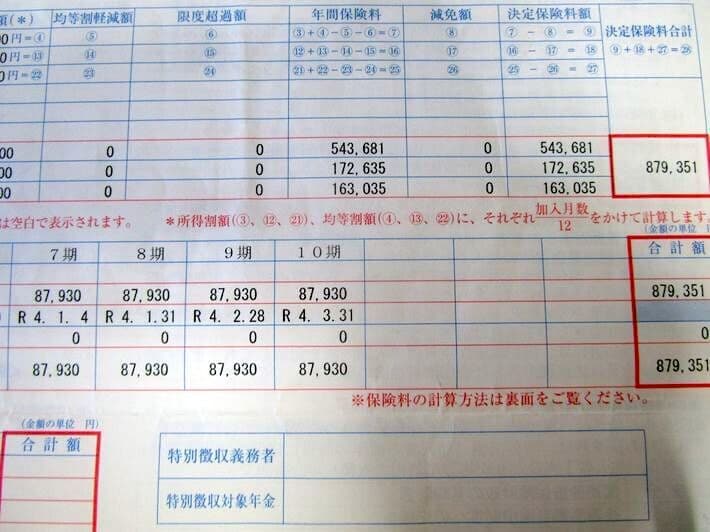 額(*) 均等割軽減額 限度超過額 年間保険料 減免額 決定保険料額 決定保険料合計
00円=④ ⑤ ⑥ ③+④-⑤-⑥=⑦ ⑧ ⑦-⑧=⑨ ⑨+⑱+㉗=㉘
0円=⑬ ⑭ ⑮ ⑫+⑬-⑭-⑮=⑯ ⑰ ⑯-⑰=⑱
0円=㉒ ㉓ ㉔ ㉑+㉒-㉓-㉔=㉕ ㉖ ㉕-㉖=㉗
00 0 0 543,681 0 543,681
00 0 0 172,635 0 172,635 879,351
00 0 0 163,035 0 163,035
は空白で表示されます。 *所得割額(③、⑫、㉑)、均等割額(④、⑬、㉒)に、それぞれ加入月数/12をかけて計算します。
(金額の単位
7期 8期 9期 10期 合計額
87,930 87,930 87,930 87,930 879,351
R 4. 1. 4 R 4. 1.31 R 4. 2.28 R 4. 3.31
0 0 0 0 0
87,930 87,930 87,930 87,930 879,351
※保険料の計算方法は裏面をご覧ください。
(金額の単位 円)
合計額
特別徴収義務者
特別徴収対象年金